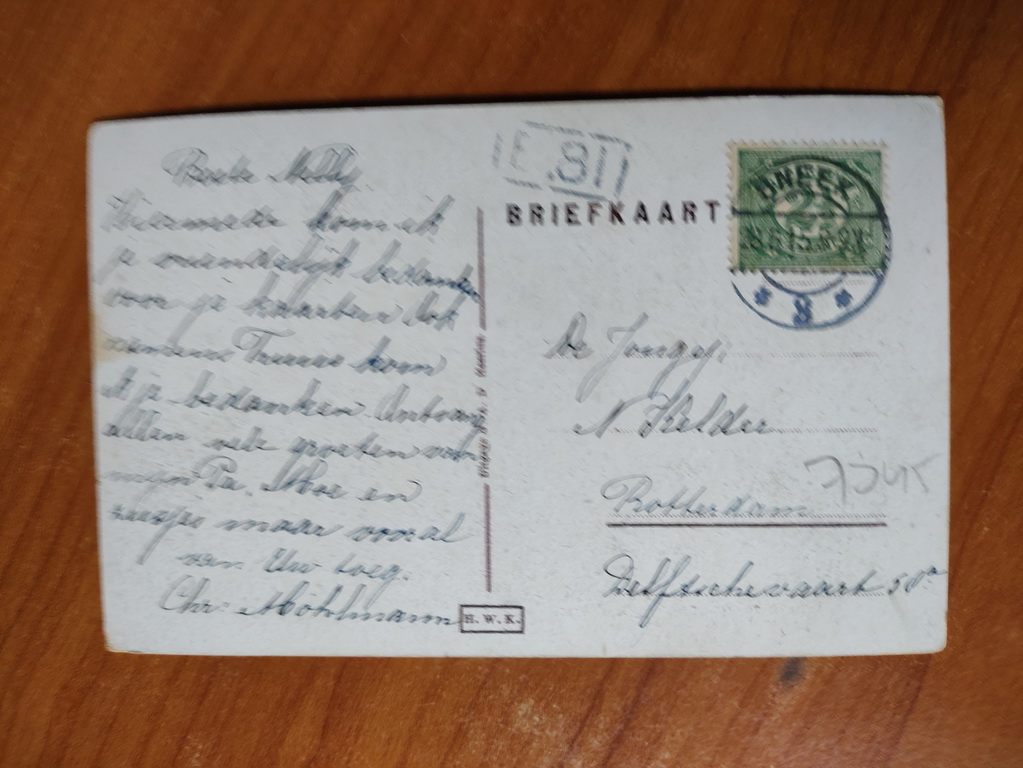 Beste Nelly
Hiermede kom ik
je vriendelijk bedanken
voor je kaarten Ook
namens Truus kom
ik je bedanken Ontvang
allen vele groeten van
mijn Pa, Moe en
zusjes maar vooral
van Uw toeg.
Chr. Möhlmann
H. W. K.
E.811
BRIEFKAART
SNEEK
3
De Jongej.
N. Kelder
Rotterdam
Delftschevaart 58a